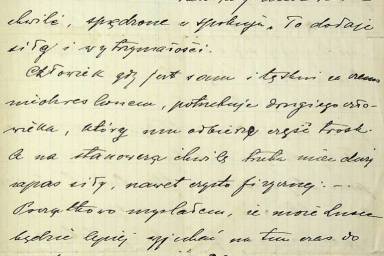 chwile, spędzone w spokoju. To dodaje
siły i wytrzymałości.
Człowiek gdy jest sam i tęskni za czemś
nieokreślonem, potrzebuje drugiego czło-
wieka, który mu odbierze część trosk.
A na stanowczą chwilę trzeba mieć duży
zapas siły, nawet czysto fizycznej. —
Początkowo myślałem, że może
będzie lepiej wyjechać na ten czas do